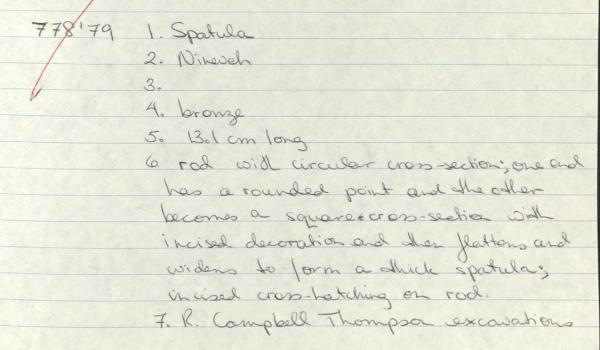 778'79 1. Spatula
2. Nineveh
3.
4. bronze
5. 13.1 cm long
6. rod with circular cross-section; one end
has a rounded point and the other
becomes a square cross-section with
incised decoration and then flattens and
widens to form a thick spatula;
incised cross-hatching on rod.
7. R. Campbell Thompson excavations